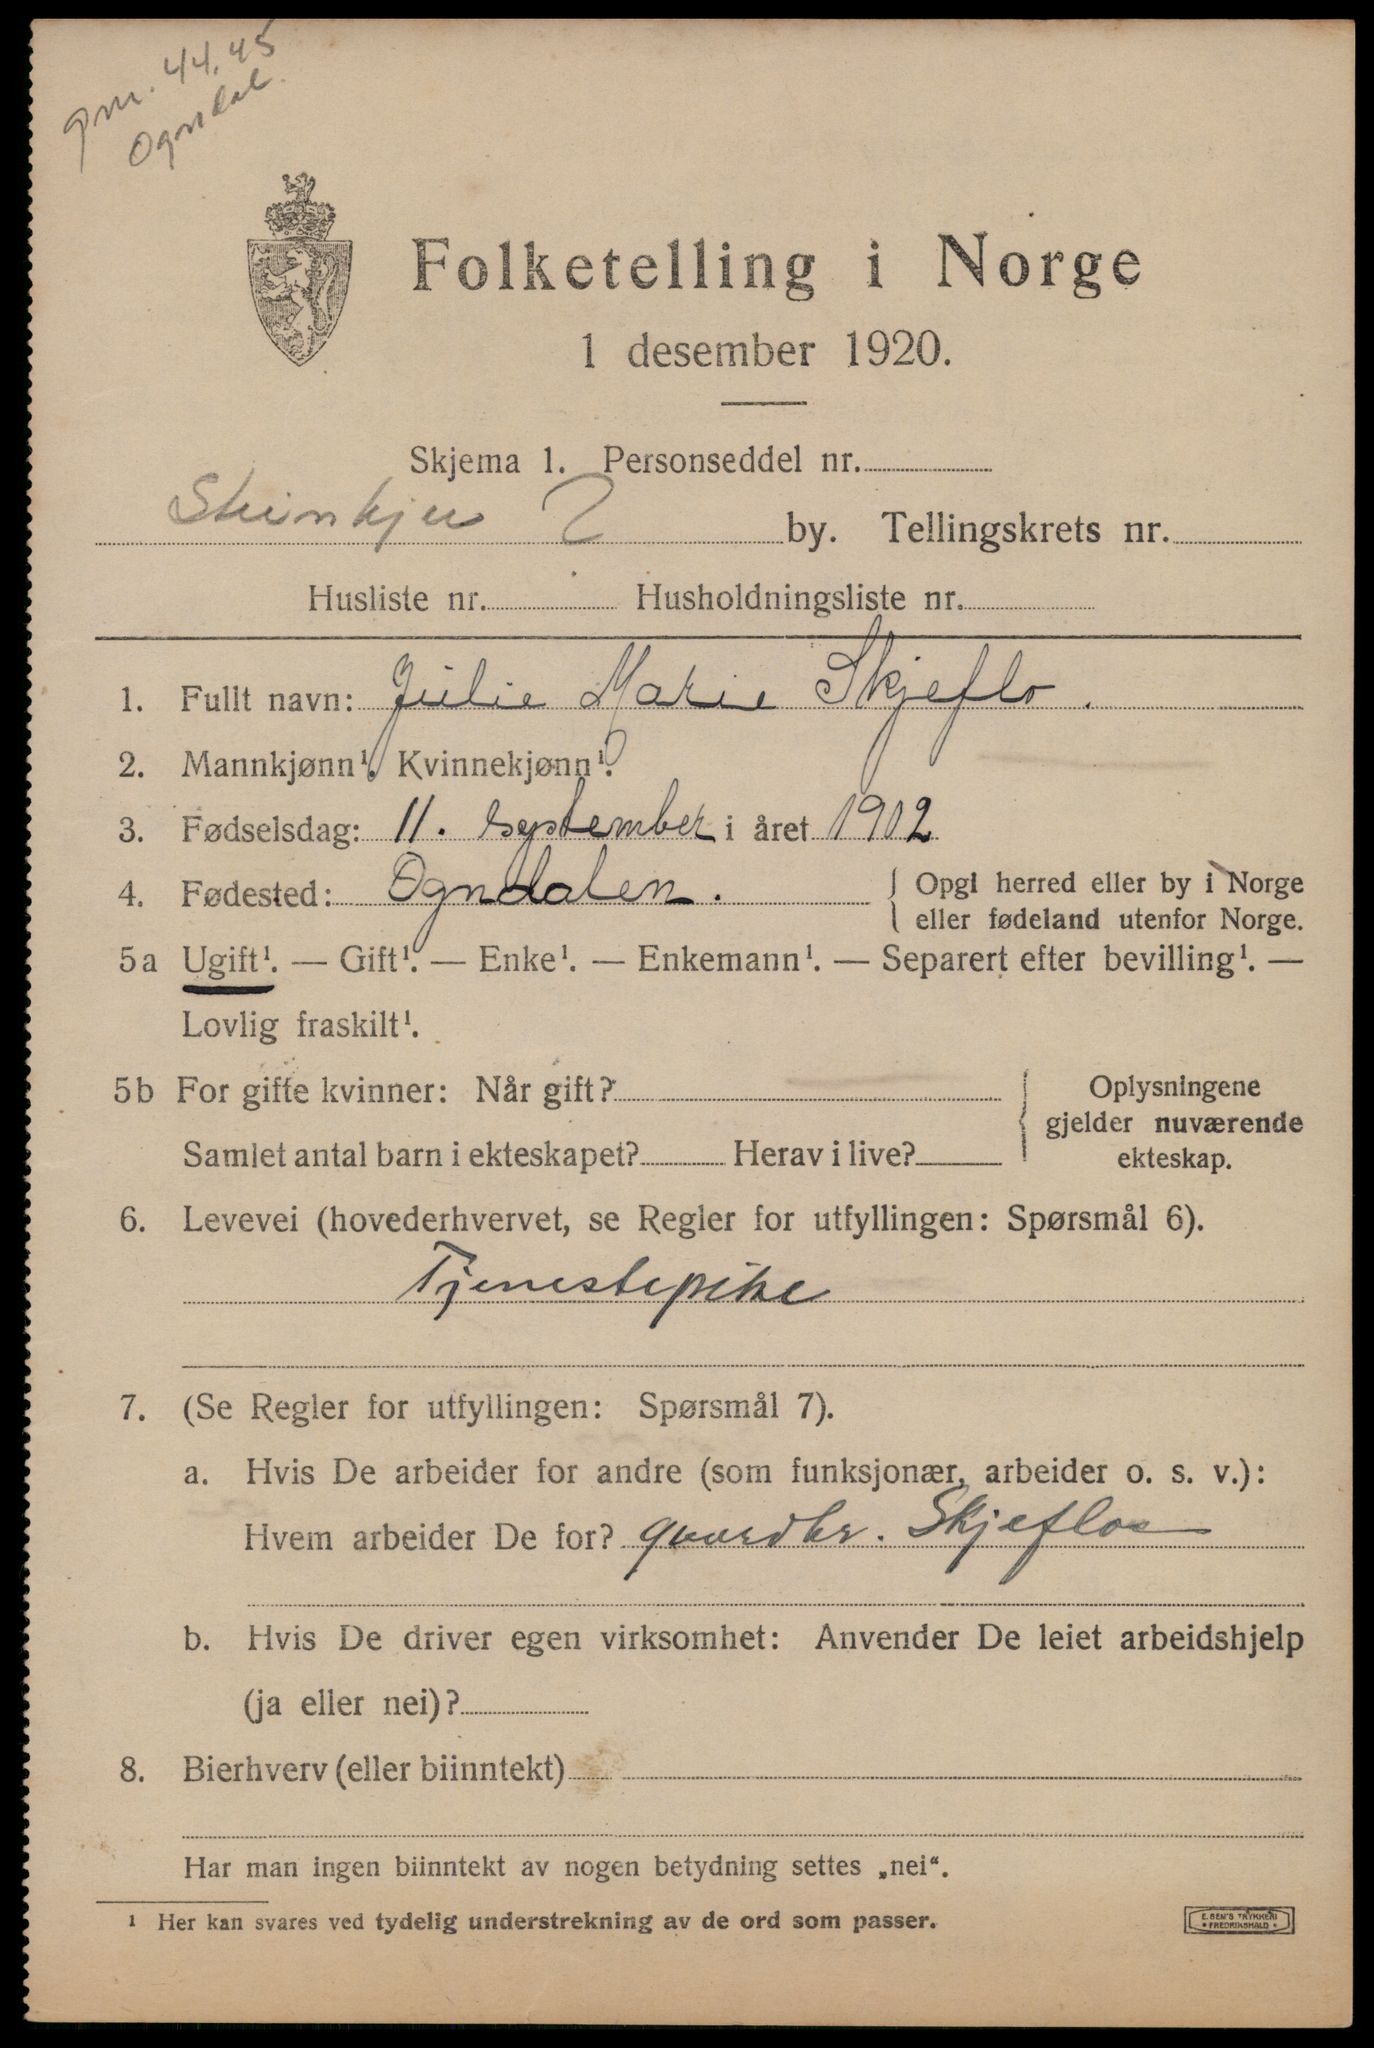 gm. 44.45
Ogndal.
Folketelling i Norge
1 desember 1920.
Skjema 1. Personseddel nr.
Steinkjer by. Tellingskrets nr.
Husliste nr. Husholdningsliste nr.
1. Fullt navn: Julie Marie Skjeflo.
2. Mannkjønn¹. Kvinnekjønn¹.
3. Fødselsdag: 11. september i året 1902
4. Fødested: Ogndalen. { Opgi herred eller by i Norge
eller fødeland utenfor Norge.
5a Ugift¹. — Gift¹. — Enke¹. — Enkemann¹. — Separert efter bevilling¹. —
Lovlig fraskilt¹.
5b For gifte kvinner: Når gift? { Oplysningene
gjelder nuværende
Samlet antal barn i ekteskapet? Herav i live? ekteskap.
6. Levevei (hovederhvervet, se Regler for utfyllingen: Spørsmål 6).
Tjenestepike
7. (Se Regler for utfyllingen: Spørsmål 7).
a. Hvis De arbeider for andre (som funksjonær, arbeider o. s. v.):
Hvem arbeider De for? gaardbr. Skjeflo
b. Hvis De driver egen virksomhet: Anvender De leiet arbeidshjelp
(ja eller nei)?
8. Bierhverv (eller biinntekt)
Har man ingen biinntekt av nogen betydning settes „nei“.
¹ Her kan svares ved tydelig understrekning av de ord som passer.
E. SEM'S TRYKKERI
• FREDRIKSHALD •